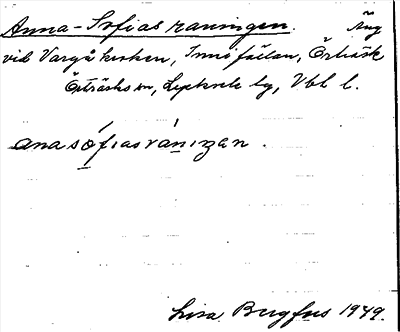 Anna-Sofias raningen. Äng
vid Vargå kroken, Innifällan, Örträsk
Örträsks sn, Lycksele lg, Vbl l.
anasófiasrániŋan.
Lisa Bergfors 1949.